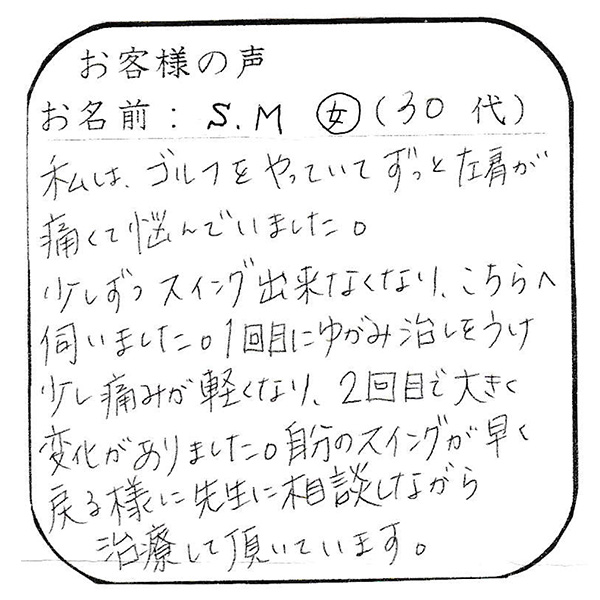 お客様の声
お名前：S.M 女（30 代）
私は、ゴルフをやっていてずっと左肩が
痛くて悩んでいました。
少しずつスイング出来なくなり、こちらへ
伺いました。1回目にゆがみ治しをうけ
少し痛みが軽くなり、2回目で大きく
変化がありました。自分のスイングが早く
戻る様に先生に相談しながら
治療して頂いています。